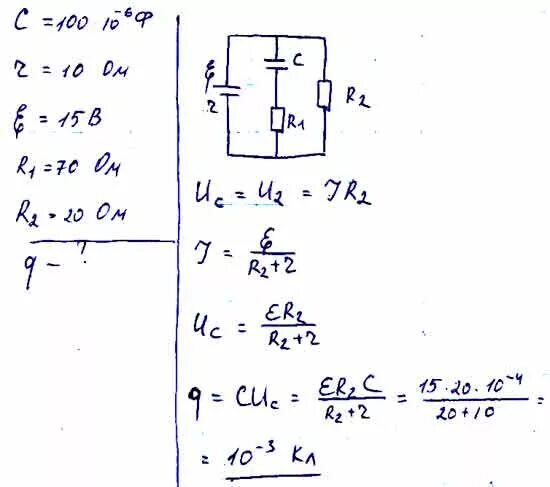 C = 100 10⁻⁶ Ф
r = 10 Ом
ℰ = 15 В
R₁ = 70 Ом
R₂ = 20 Ом
q - ?
ℰ
r
C
R₁
R₂
U_C = U₂ = IR₂
I = ℰ / (R₂ + r)
U_C = ℰR₂ / (R₂ + r)
q = CU_C = ℰR₂C / (R₂ + r) = 15 · 20 · 10⁻⁴ / (20 + 10) =
= 10⁻³ Кл